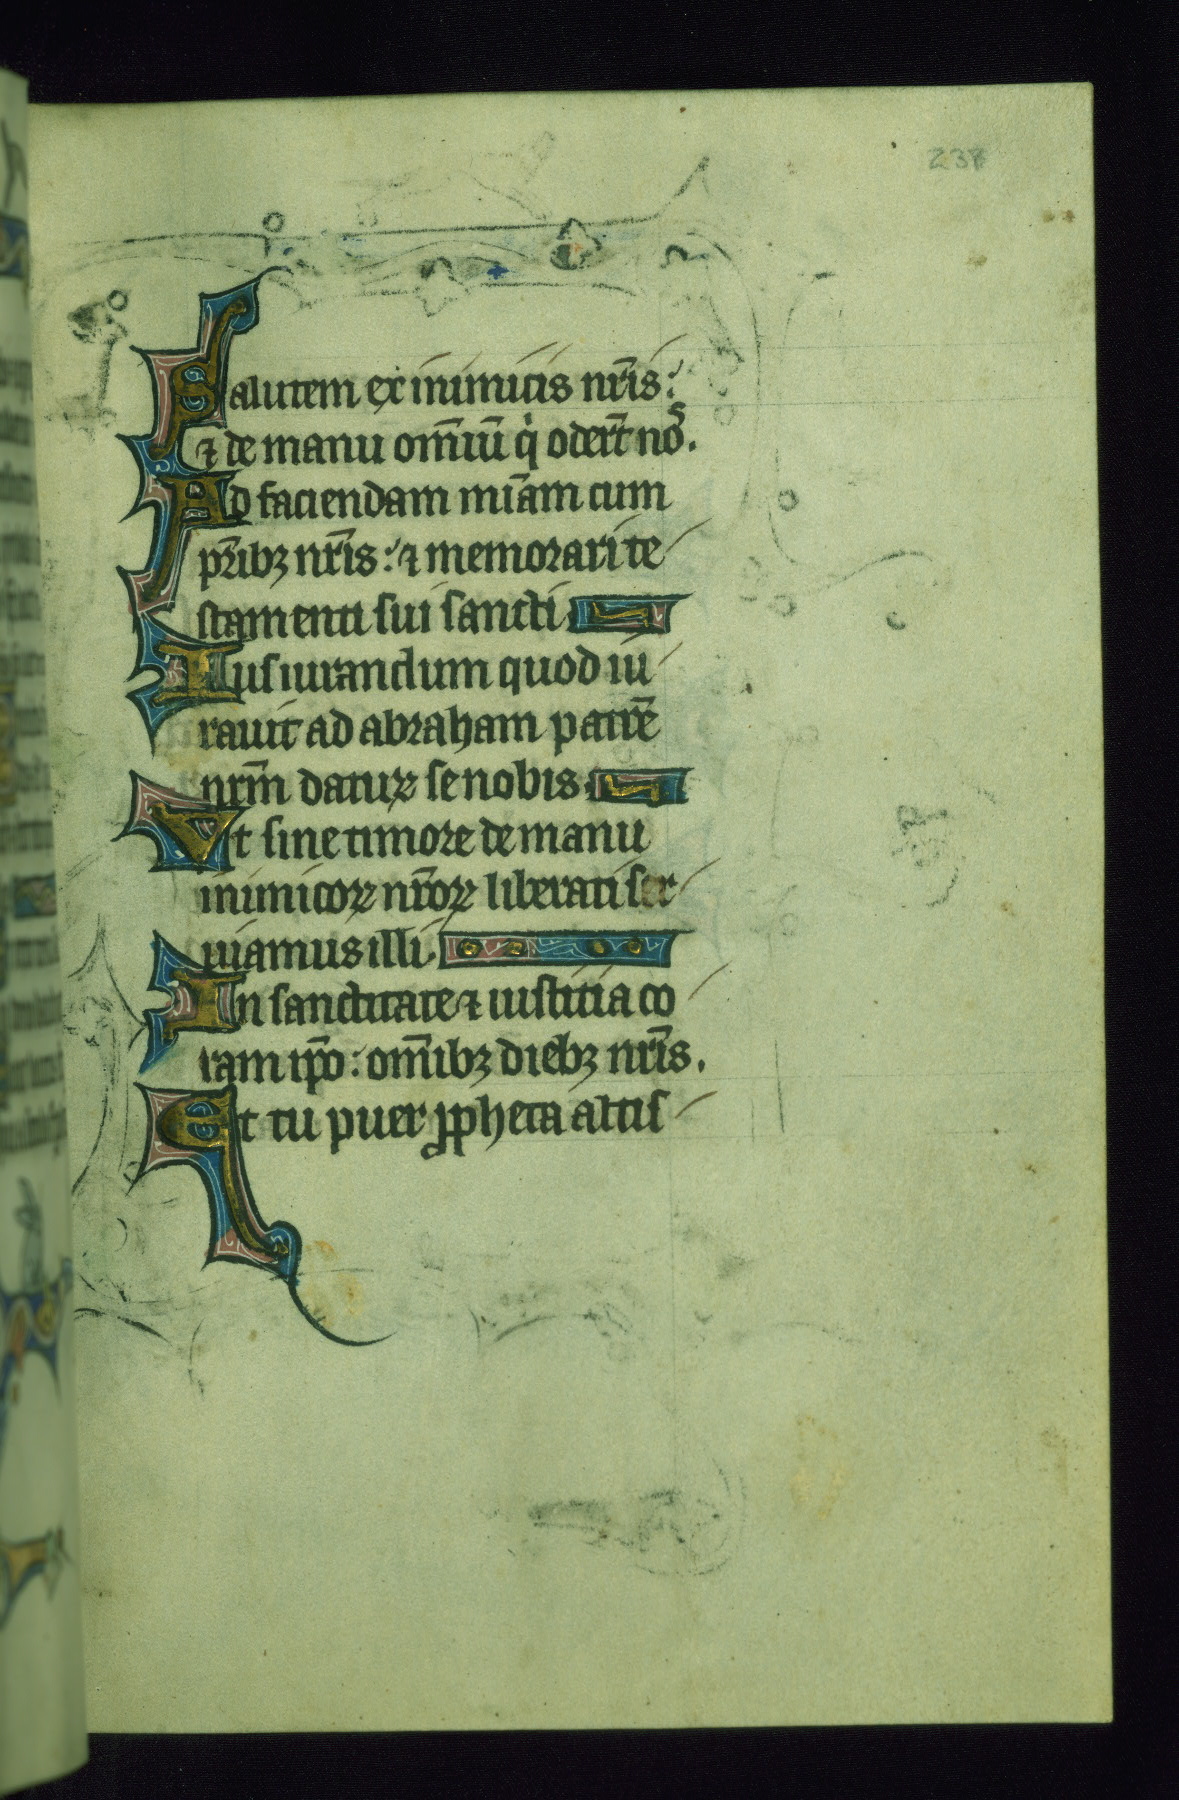 Salutem ex inimicis nr̄is:
⁊ de manu om̄iū q̇ odert̄ noˢ.
Ad faciendam mīam cum
pr̄ibꝫ nr̄is: ⁊ memorari te
stamenti sui sancti
Iusiurandum quod iu
rauit ad abraham patrē
nr̄m daturꝝ se nobis
Vt sine timore de manu
inimicoꝝ nr̄oꝝ liberati ser
uiamus illi.
In sanctitate ⁊ iusticia co
ram ip̄o: om̄ibꝫ diebꝫ nr̄is.
Et tu puer ꝓpheta altis